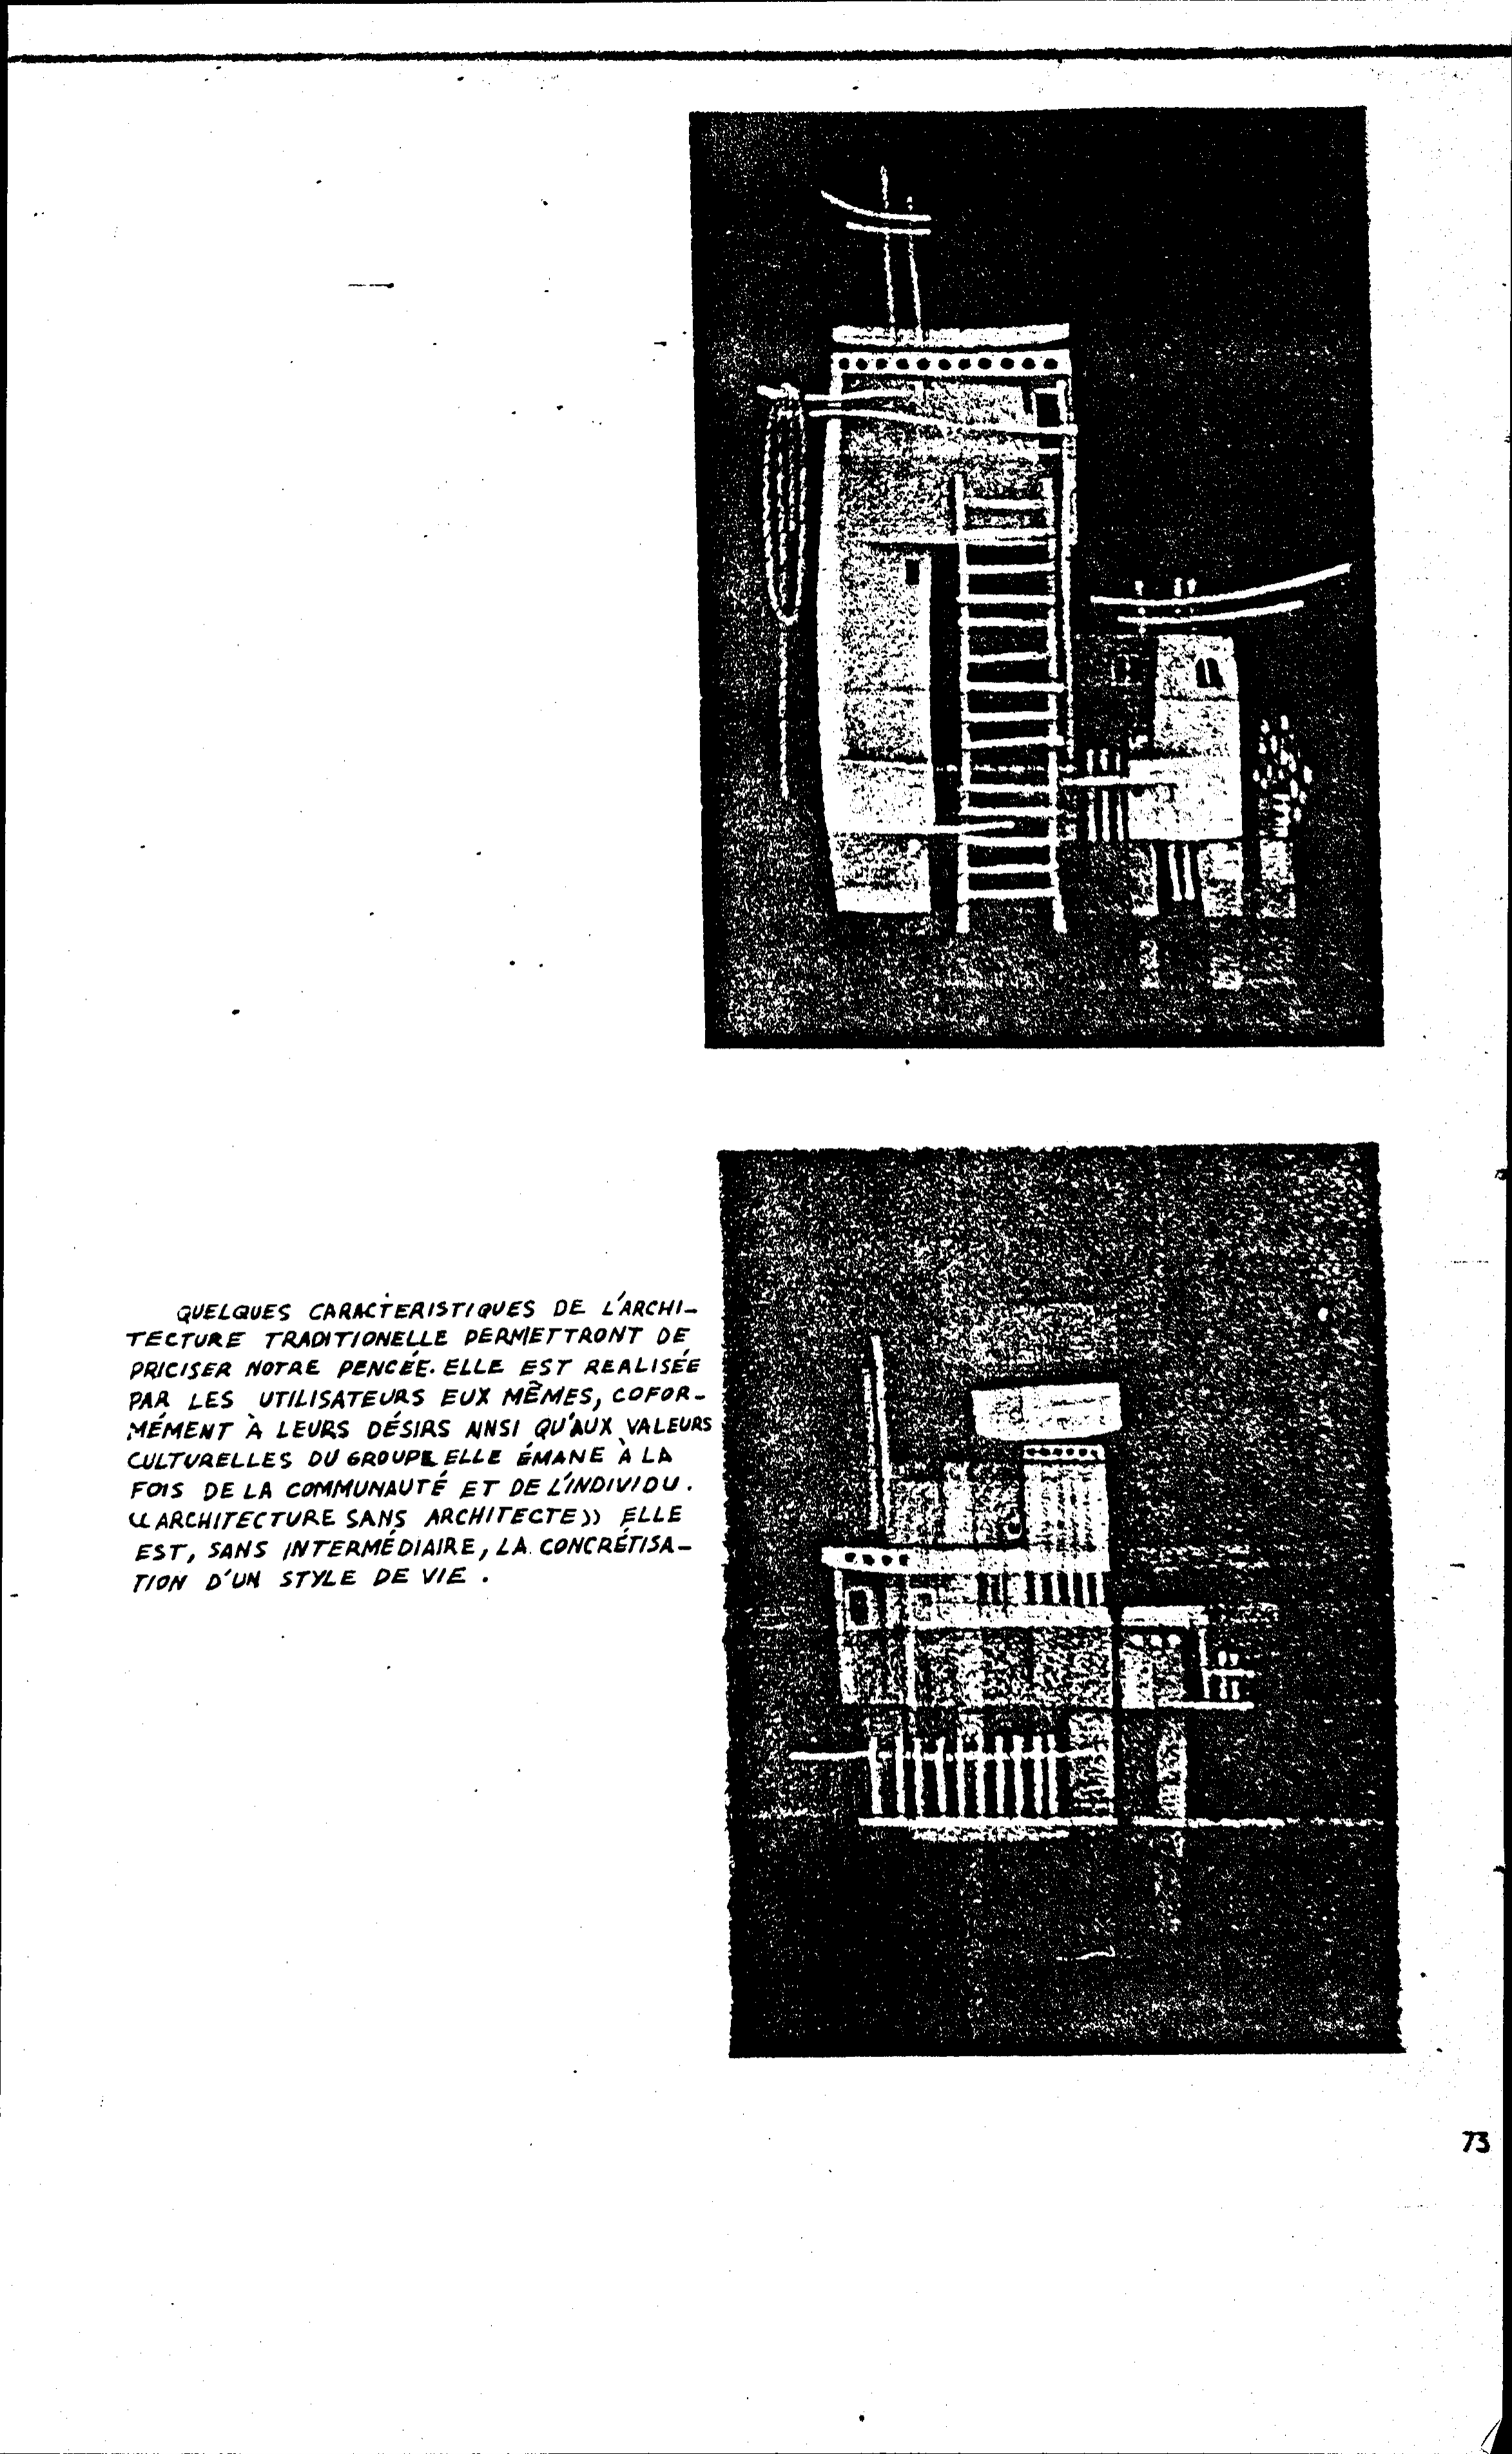 QUELQUES CARACTERISTIQUES DE L'ARCHI-
TECTURE TRADITIONELLE PERMETTRONT DE
PRICISER NOTRE PENCÉE. ELLE EST REALISÉE
PAR LES UTILISATEURS EUX MÊMES, COFOR-
MÉMENT À LEURS DÉSIRS AINSI QU'AUX VALEURS
CULTURELLES DU GROUPE ELLE ÉMANE À LA
FOIS DE LA COMMUNAUTÉ ET DE L'INDIVIDU.
« ARCHITECTURE SANS ARCHITECTE » ELLE
EST, SANS INTERMÉDIAIRE, LA CONCRÉTISA-
TION D'UN STYLE DE VIE .
73